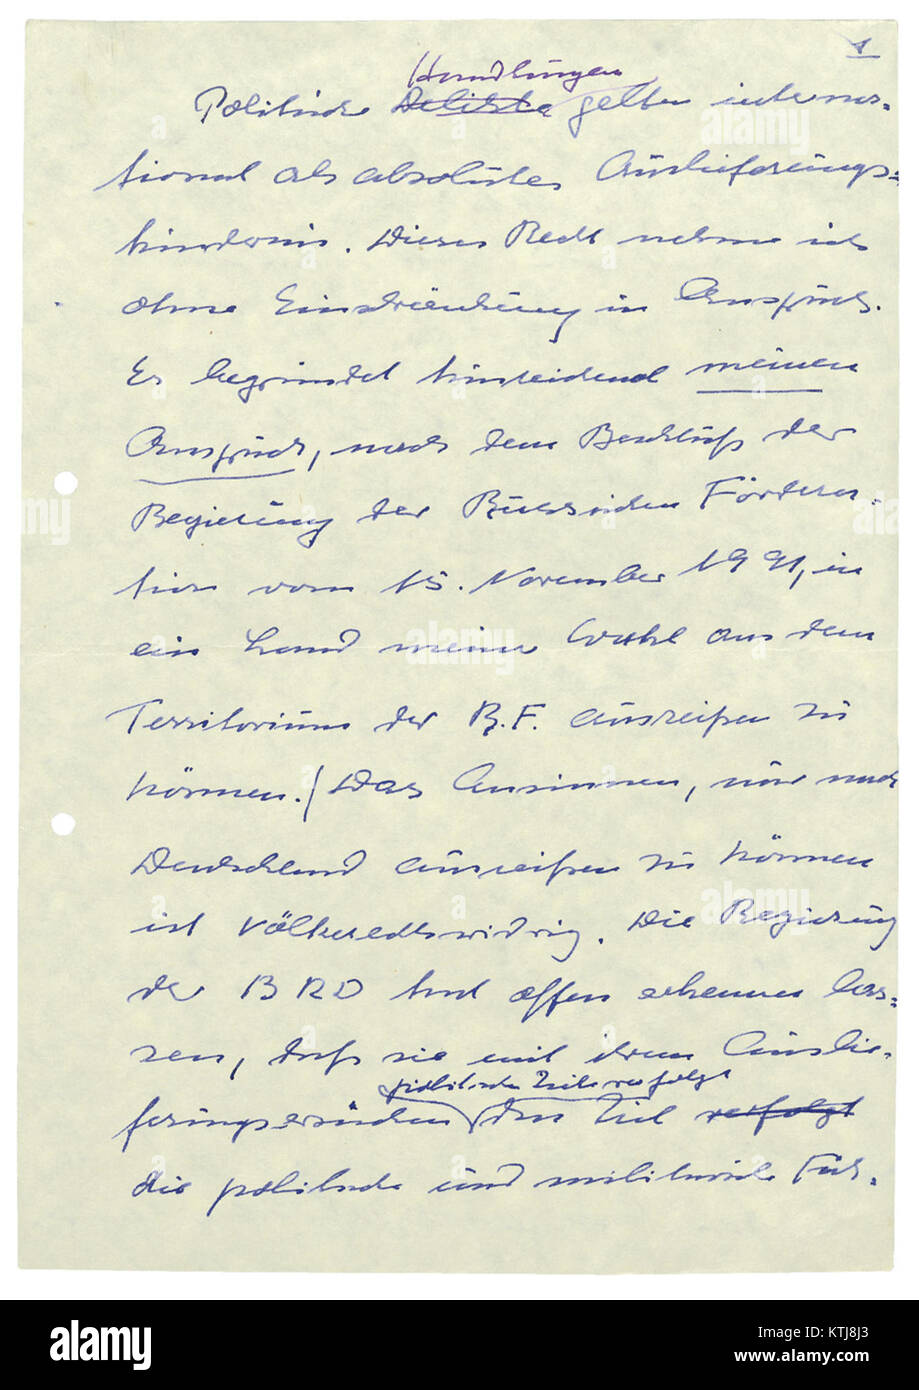 1
Handlungen
Politische Delikte gelten interna-
tional als absolutes Auslieferungs=
hindernis. Dieses Recht nehme ich
ohne Einschränkung in Anspruch.
Es begründet hinreichend meinen
Anspruch, nach dem Beschluß der
Regierung der Russischen Födera-
tion vom 15. November 1991, in
ein Land meiner Wahl aus dem
Territorium der R.F. ausreisen zu
können./ Das Ansinnen, nur nach
Deutschland ausreisen zu können
ist völkerrechtswidrig. Die Regierung
der BRD hat offen erkennen las=
sen, daß sie mit ihrem Auslie-
politische Ziele verfolgt
ferungsersuchen das Ziel verfolgt
die politische und militärische Füh=
alamy
Image ID: KTJ8J3
www.alamy.com